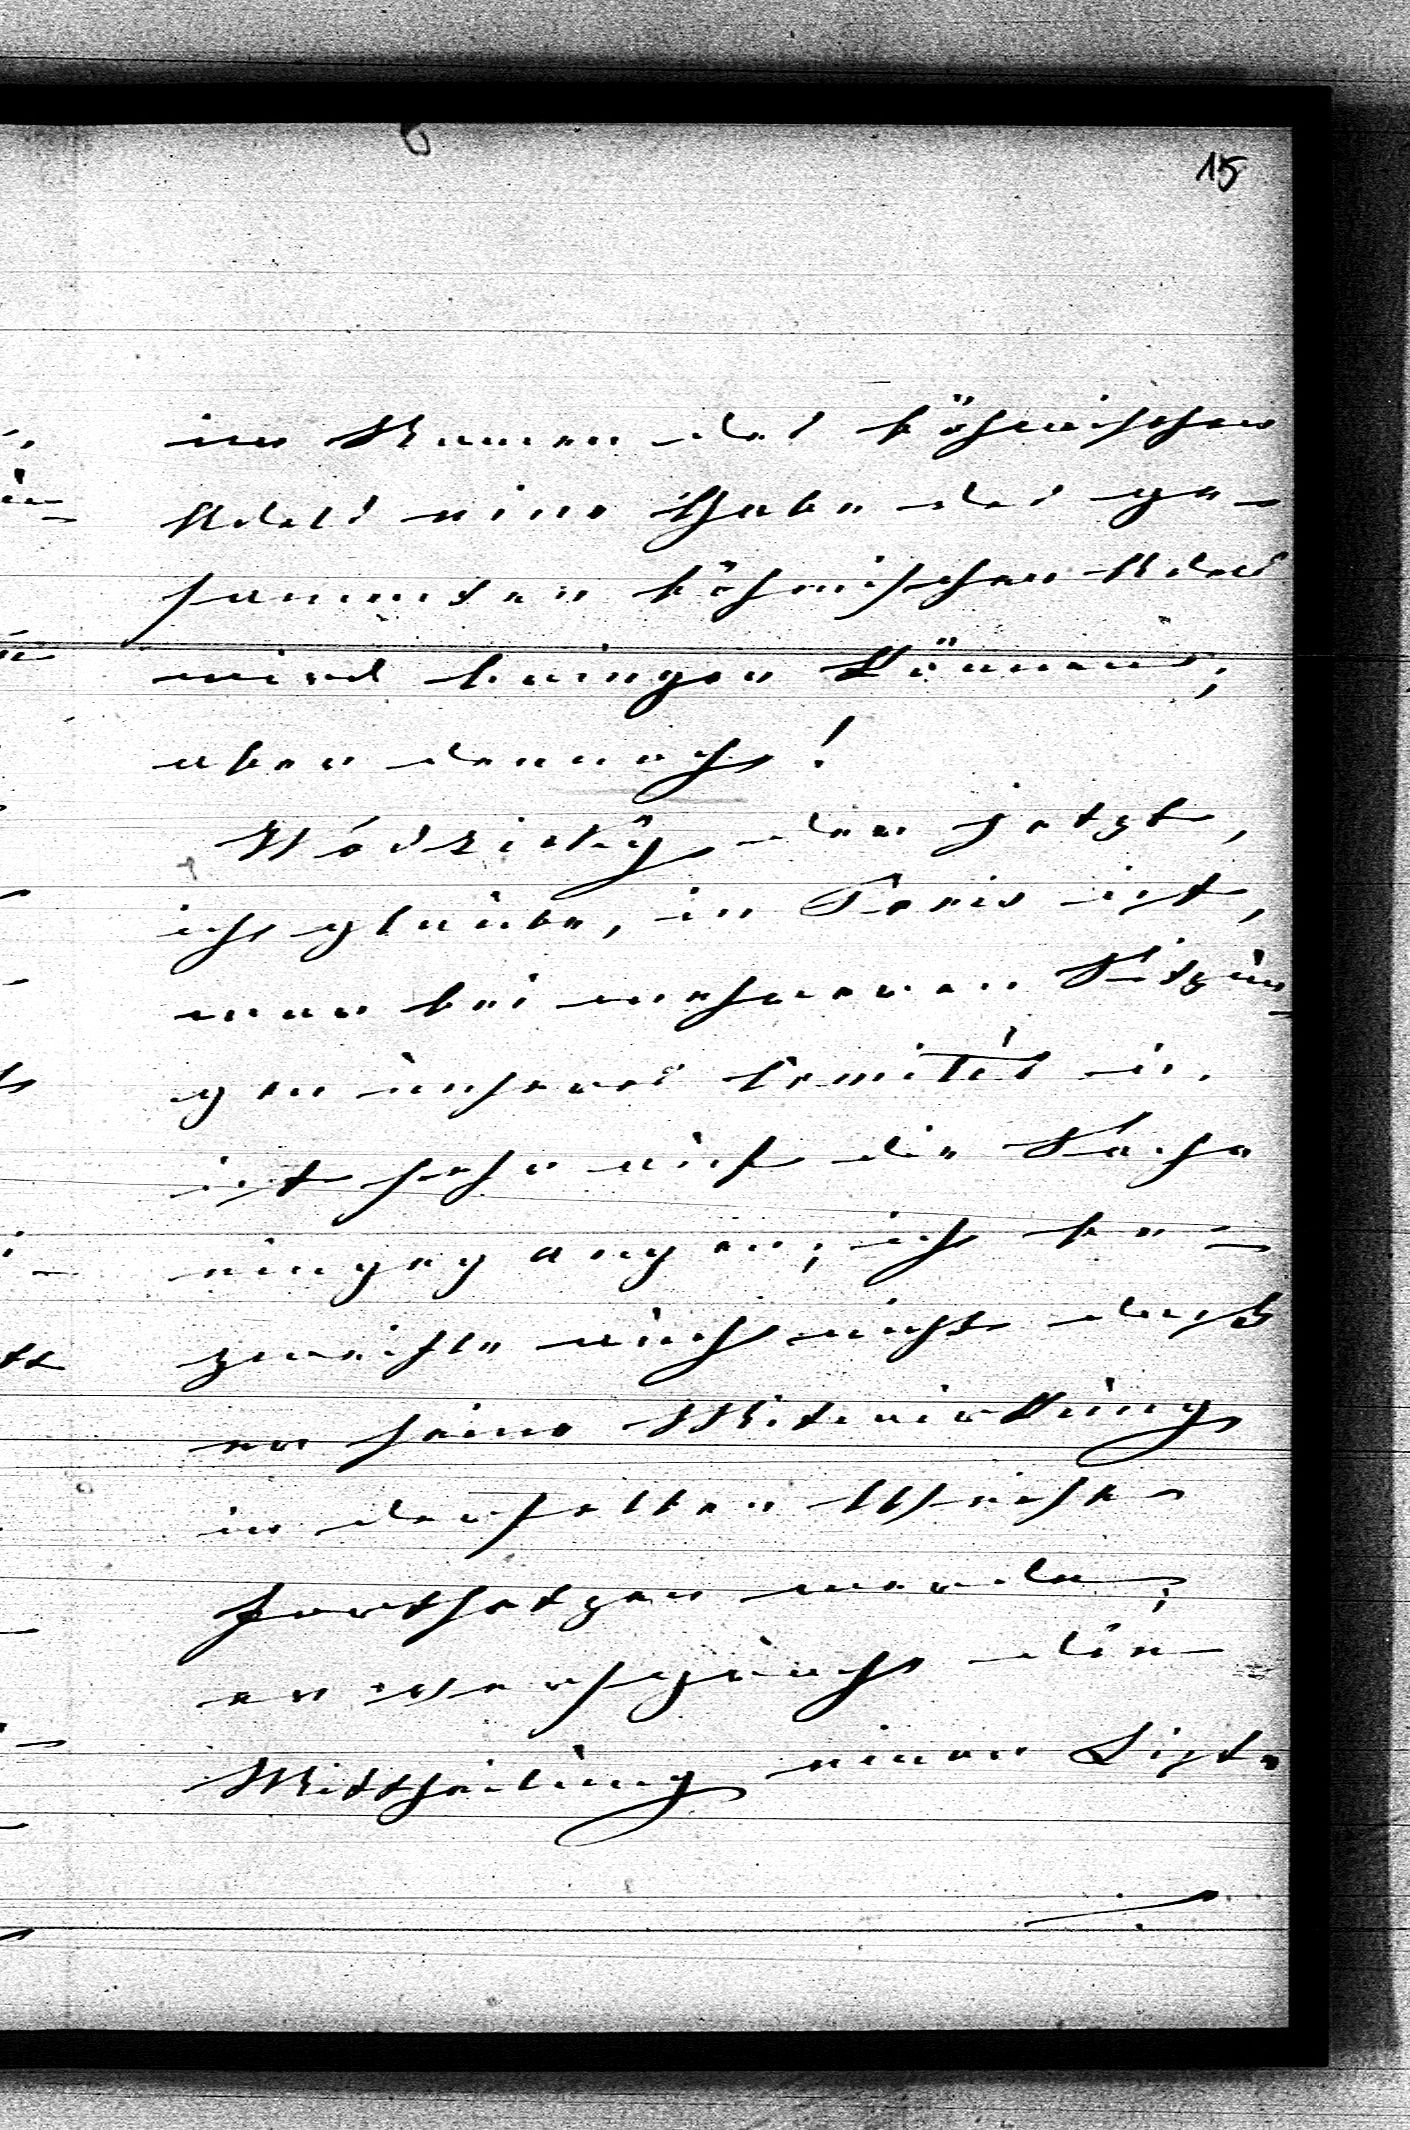 15
im Namen des böhmischen
Adels eine Gabe des ge-
sammten böhmischen Adels
wird bringen können;
aber dennoch!
Wodzicky, der jetzt,
ich glaube, in Paris ist,
war bei mehreren Sitzun-
gen unseres Comités u.
ist sehr auf die Sache
eingegangen; ich be-
zweifle auch nicht daß
er seine Mitwirkung
in derselben Weise
fortsetzen werde;
er versprach die
Mittheilung einer Liste